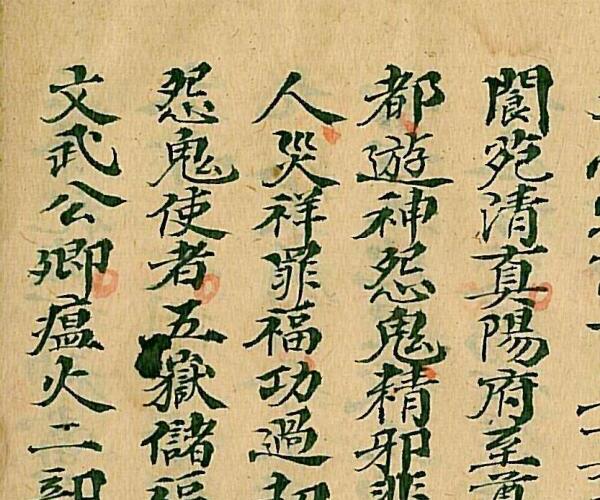 閬苑清真陽府至
都遊神怨鬼精邪
人災祥罪福功過
怨鬼使者五嶽儲福
文武公卿瘟火二部